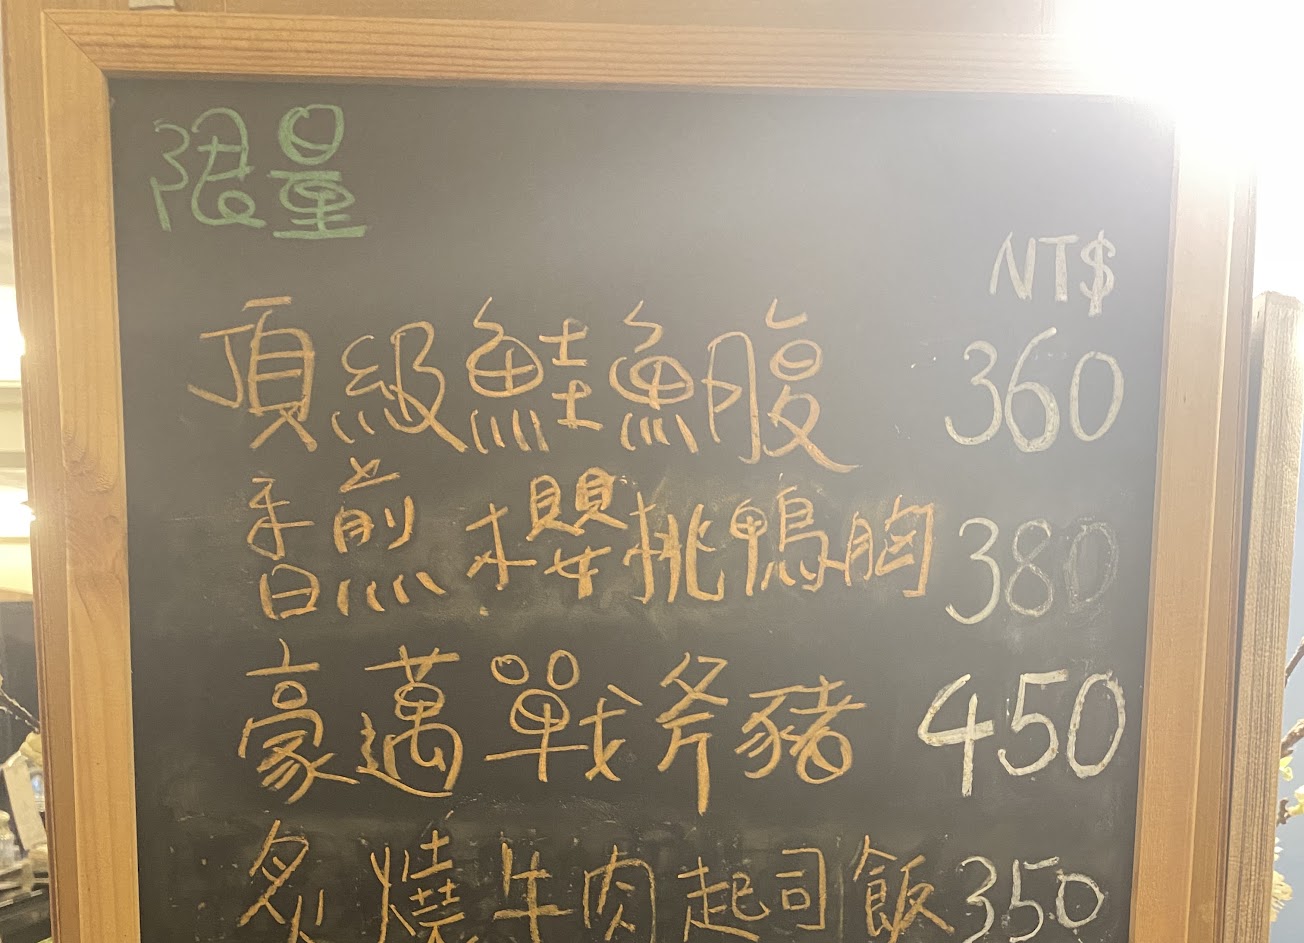 限量
NT$
頂級鮭魚腹 360
香煎櫻桃鴨胸 380
豪邁戰斧豬 450
炙燒牛肉起司飯 350